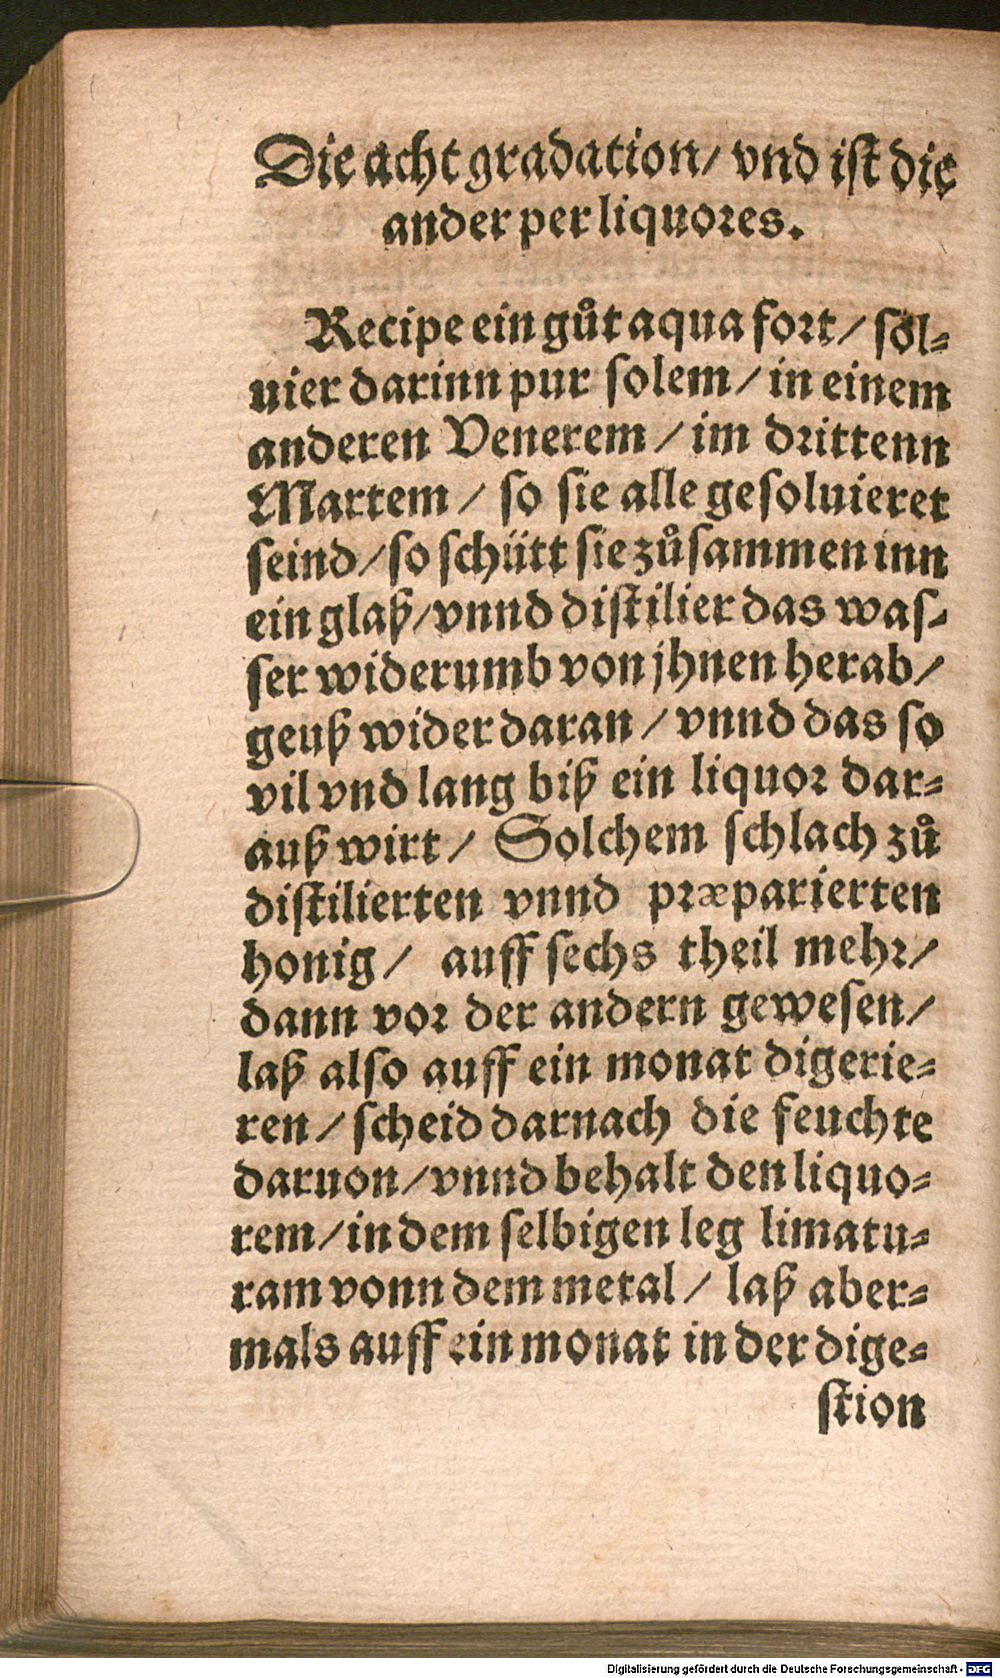 Die acht gradation/ vnd iſt die
ander per liquores.
Recipe ein gůt aqua fort/ ſol⸗
uier darinn pur ſolem/ in einem
anderen Venerem/ im drittenn
Martem/ ſo ſie alle geſoluieret
ſeind/ ſo ſchütt ſie zůſammen inn
ein glaß/ vnnd diſtilier das waſ⸗
ſer widerumb von jhnen herab/
geuß wider daran/ vnnd das ſo
vil vnd lang biß ein liquor dar⸗
auß wirt/ Solchem ſchlach zů
diſtilierten vnnd præparierten
honig/ auff ſechs theil mehr/
dann vor der andern geweſen/
laß alſo auff ein monat digerie⸗
ren/ ſcheid darnach die feuchte
daruon/ vnnd behalt den liquo⸗
rem/ in dem ſelbigen leg limatu⸗
ram vonn dem metal/ laß aber⸗
mals auff ein monat in der dige⸗
ſtion
Digitalisierung gefördert durch die Deutsche Forschungsgemeinschaft - DFG